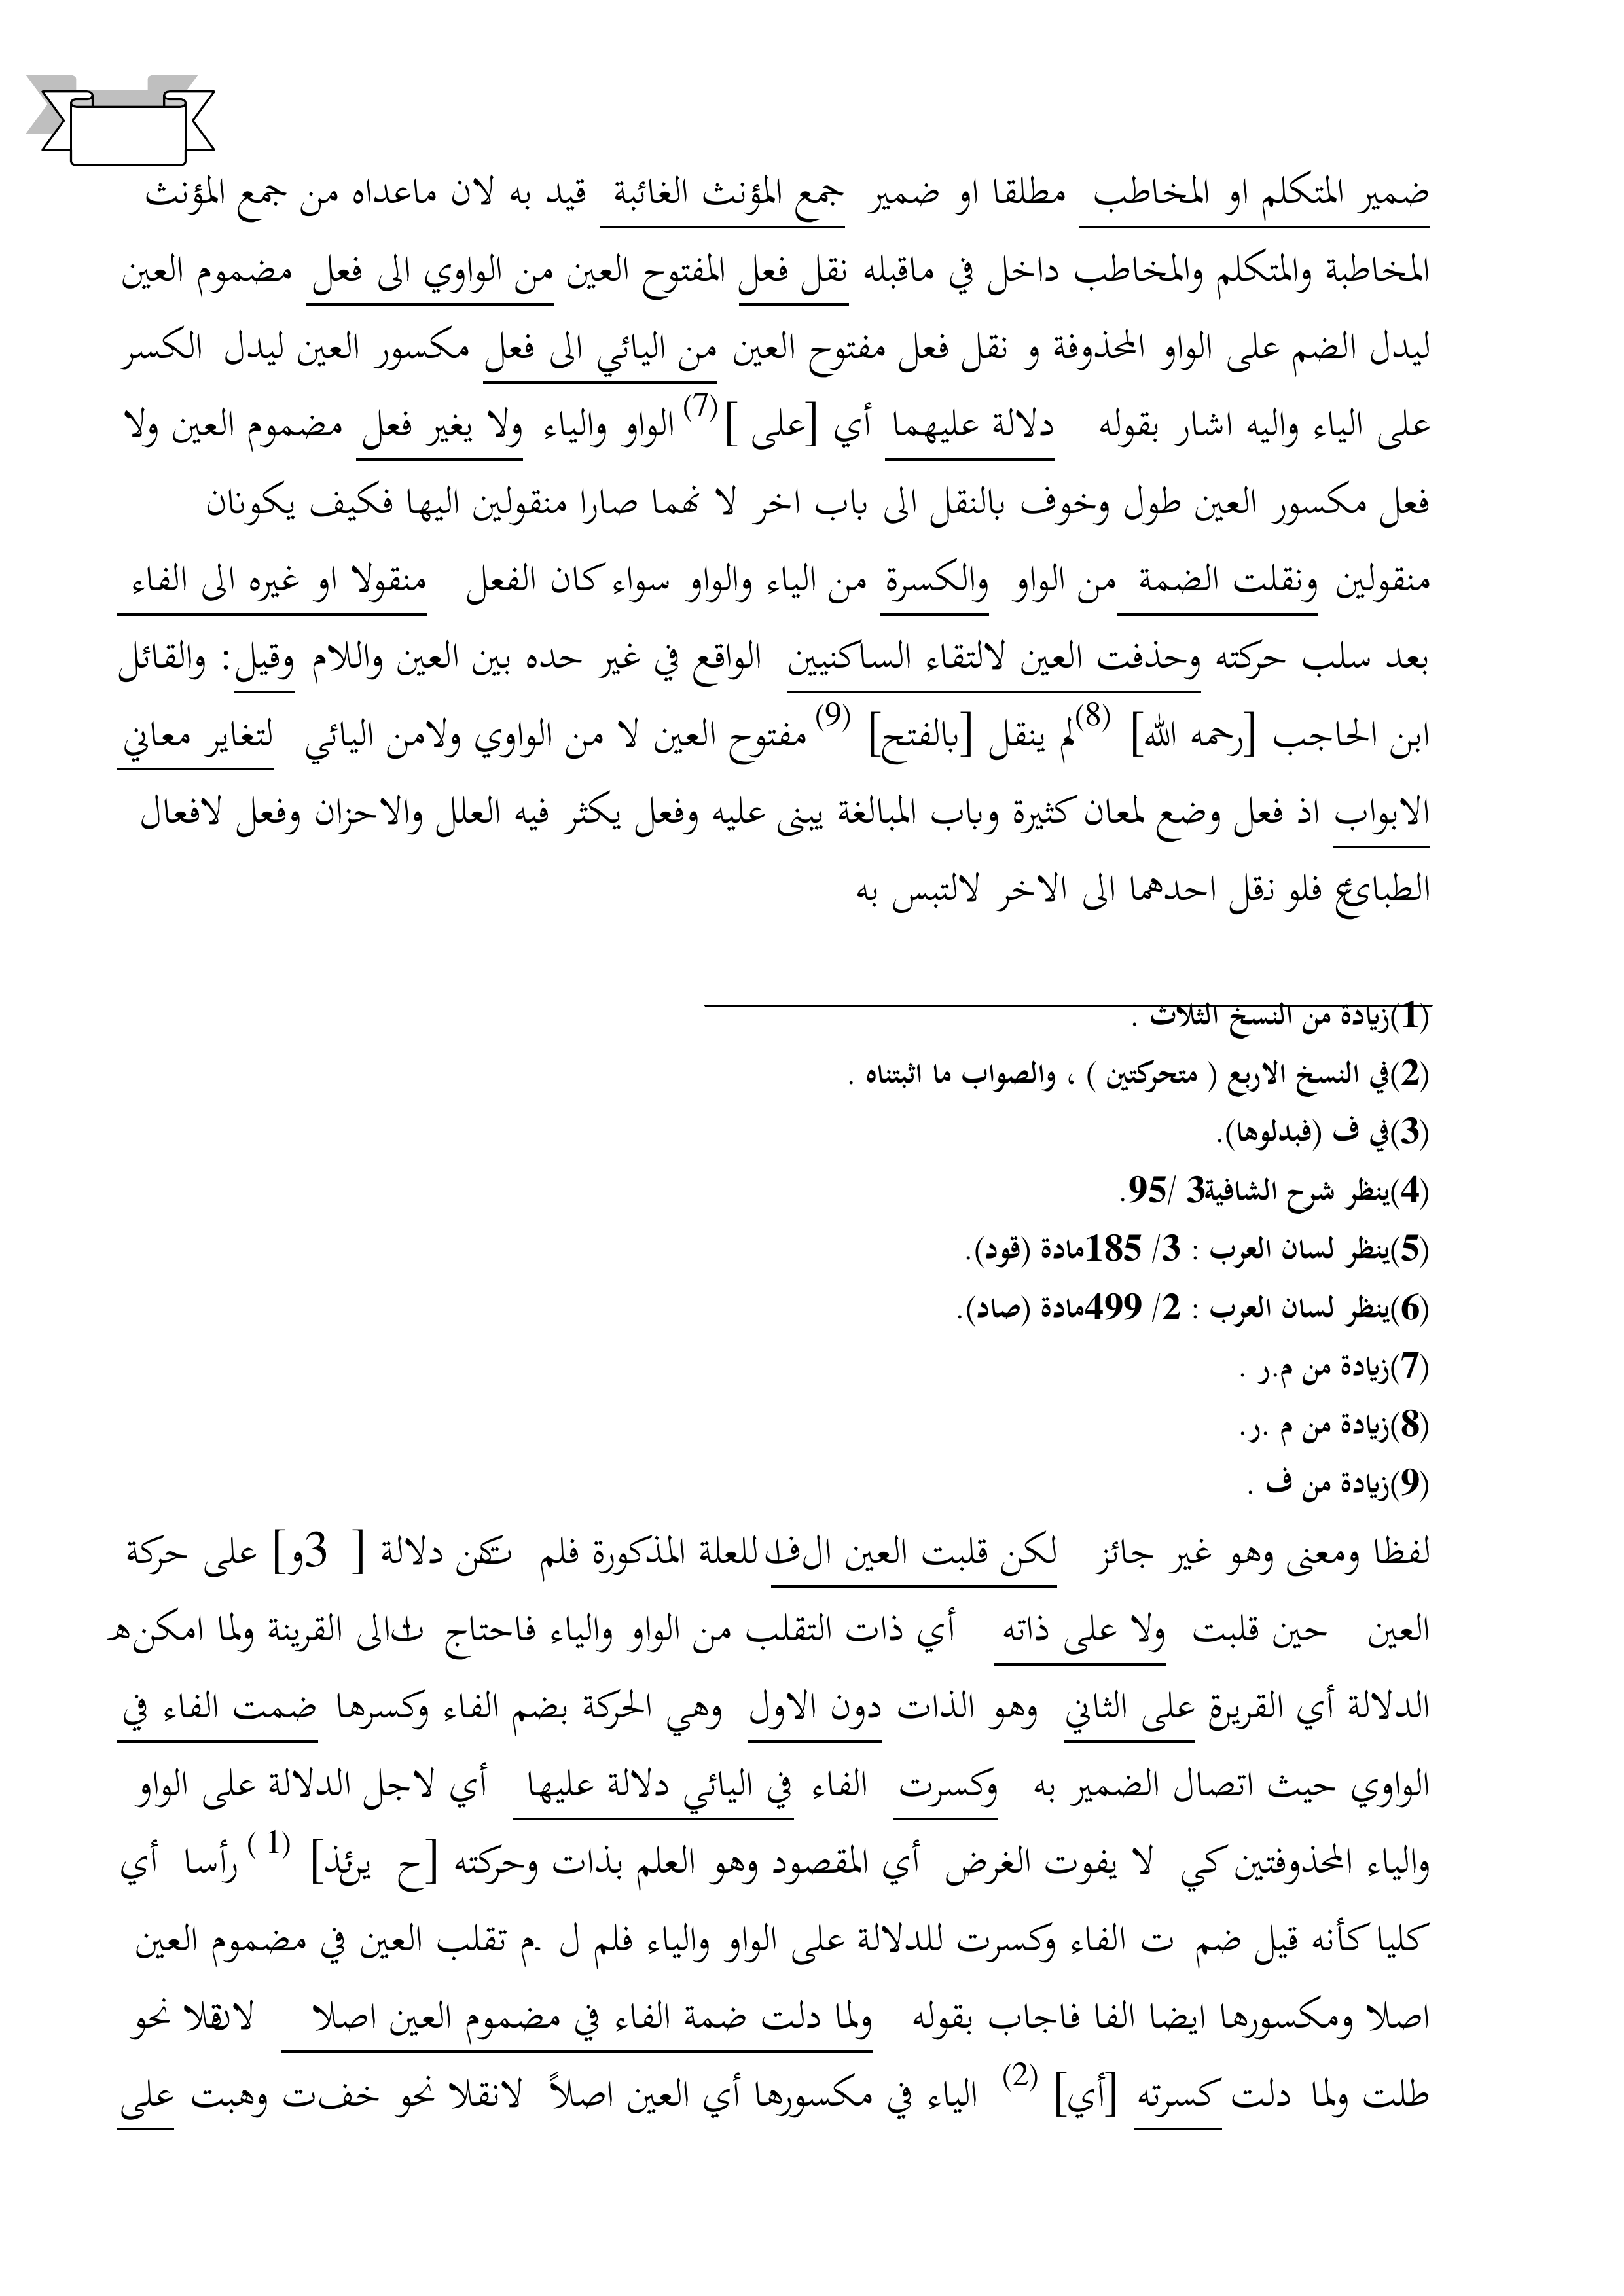 ضمير المتكلم او المخاطب مطلقا او ضمير جمع المؤنث الغائبة قيد به لان ماعداه من جمع المؤنث
المخاطبة والمتكلم والمخاطب داخل في ماقبله نقل فعل المفتوح العين من الواوي الى فعل مضموم العين
ليدل الضم على الواو المحذوفة و نقل فعل مفتوح العين من اليائي الى فعل مكسور العين ليدل الكسر
على الياء واليه اشار بقوله دلالة عليهما أي [على ](7) الواو والياء ولا يغير فعل مضموم العين ولا
فعل مكسور العين طول وخوف بالنقل الى باب اخر لا نهما صارا منقولين اليها فكيف يكونان
منقولين ونقلت الضمة من الواو والكسرة من الياء والواو سواء كان الفعل منقولا او غيره الى الفاء
بعد سلب حركته وحذفت العين لالتقاء الساكنيين الواقع في غير حده بين العين واللام وقيل: والقائل
ابن الحاجب [رحمه الله] (8)لم ينقل [بالفتح] (9) مفتوح العين لا من الواوي ولامن اليائي لتغاير معاني
الابواب اذ فعل وضع لمعان كثيرة وباب المبالغة يبنى عليه وفعل يكثر فيه العلل والاحزان وفعل لافعال
الطبائع فلو نقل احدهما الى الاخر لالتبس به
(1)زيادة من النسخ الثلاث .
(2)في النسخ الاربع ( متحركتين ) ، والصواب ما اثبتناه .
(3)في ف (فبدلوها).
(4)ينظر شرح الشافية3 /95.
(5)ينظر لسان العرب : 3/ 185مادة (قود).
(6)ينظر لسان العرب : 2/ 499مادة (صاد).
(7)زيادة من م.ر .
(8)زيادة من م .ر.
(9)زيادة من ف .
لفظا ومعنى وهو غير جائز لكن قلبت العين الفا للعلة المذكورة فلم تكن دلالة [ 3و] على حركة
العين حين قلبت ولا على ذاته أي ذات التقلب من الواو والياء فاحتاج الى القرينة ولما امكن
الدلالة أي القرينة على الثاني وهو الذات دون الاول وهي الحركة بضم الفاء وكسرها ضمت الفاء في
الواوي حيث اتصال الضمير به وكسرت الفاء في اليائي دلالة عليها أي لاجل الدلالة على الواو
والياء المحذوفتين كي لا يفوت الغرض أي المقصود وهو العلم بذات وحركته [ح ينئذ] (1 ) رأسا أي
كليا كأنه قيل ضم ت الفاء وكسرت للدلالة على الواو والياء فلم ل م تقلب العين في مضموم العين
اصلا ومكسورها ايضا الفا فاجاب بقوله ولما دلت ضمة الفاء في مضموم العين اصلا لانقلا نحو
طلت ولما دلت كسرته [أي] (2) الياء في مكسورها أي العين اصلاً لانقلا نحو خفت وهبت على